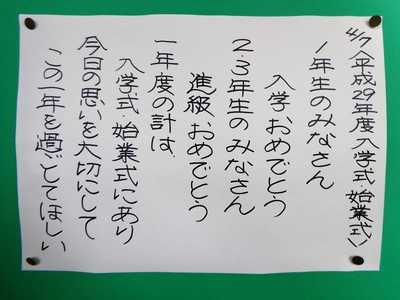 4/7〈平成29年度入学式・始業式〉
1年生のみなさん
入学おめでとう
2.3年生のみなさん
進級、おめでとう
一年度の計は、
入学式 始業式にあり
今日の思いを大切にして
この一年を過ごしてほしい